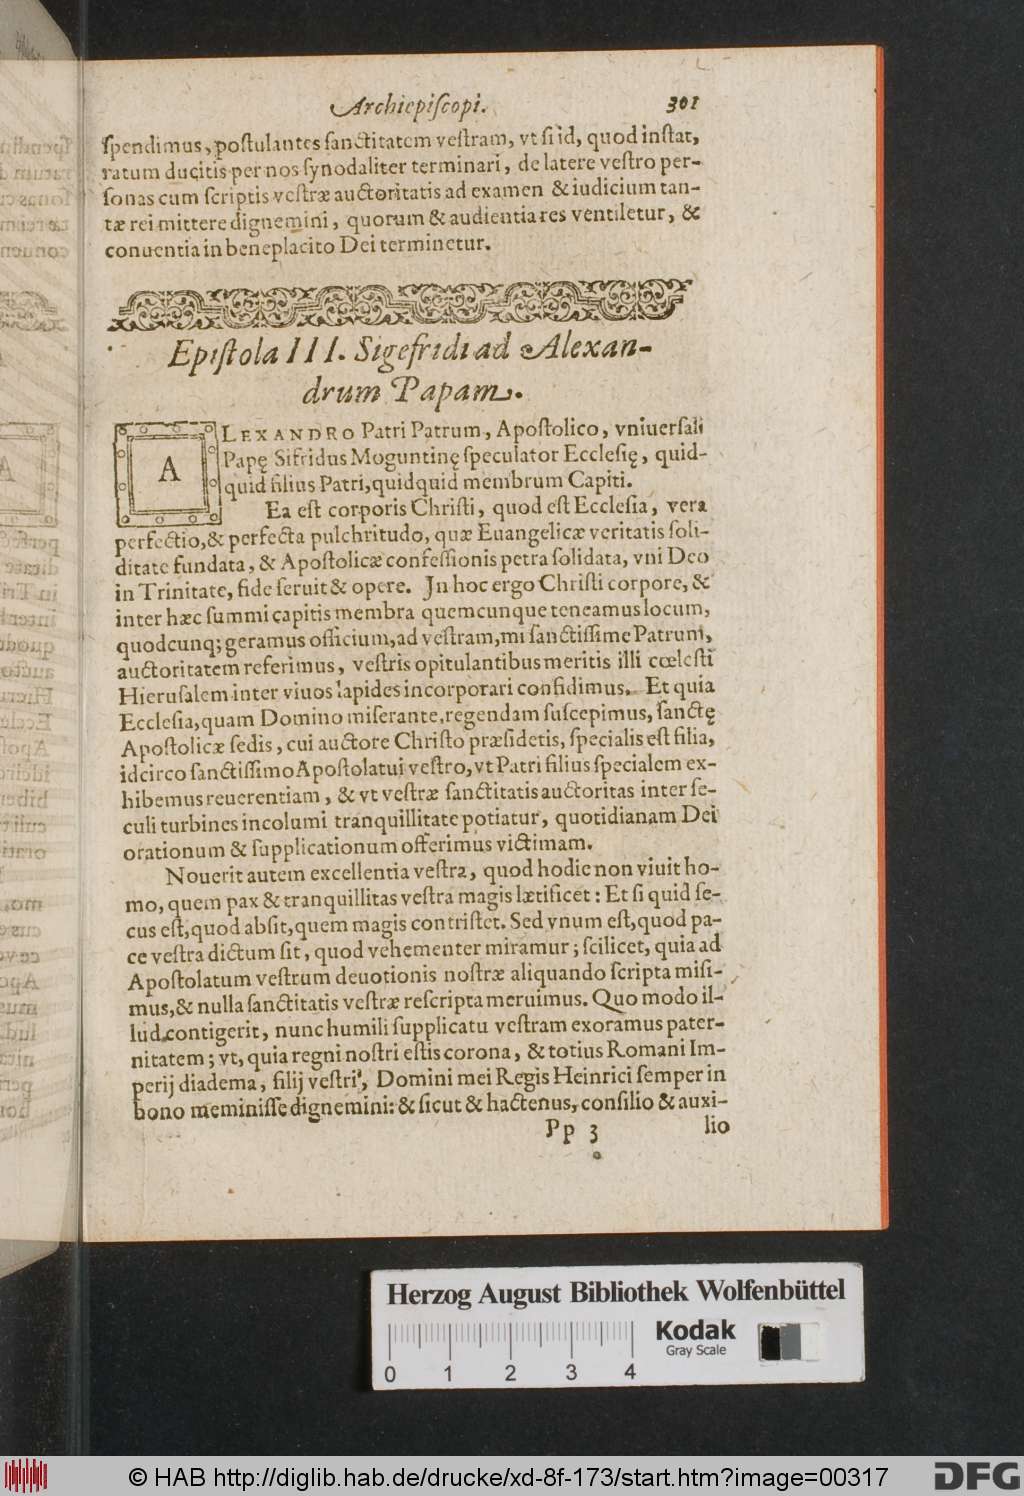 Archiepiſcopi. 301
ſpendimus, poſtulantes ſanctitatem veſtram, vt ſi id, quod inſtat,
ratum ducitis per nos ſynodaliter terminari, de latere veſtro per-
ſonas cum ſcriptis veſtræ auctoritatis ad examen & iudicium tan-
tæ rei mittere dignemini, quorum & audientia res ventiletur, &
conuentia in beneplacito Dei terminetur.
Epiſtola III. Sigefridi ad Alexan-
drum Papam.
ALEXANDRO Patri Patrum, Apoſtolico, vniuerſali
Papę Sifridus Moguntinę ſpeculator Eccleſię, quid-
quid filius Patri, quidquid membrum Capiti.
Ea eſt corporis Chriſti, quod eſt Eccleſia, vera
perfectio, & perfecta pulchritudo, quæ Euangelicæ veritatis ſoli-
ditate fundata, & Apoſtolicæ confeſſionis petra ſolidata, vni Deo
in Trinitate, fide ſeruit & opere. Jn hoc ergo Chriſti corpore, &
inter hæc ſummi capitis membra quemcunque teneamus locum,
quodcunq; geramus officium, ad veſtram, mi ſanctiſſime Patrum,
auctoritatem referimus, veſtris opitulantibus meritis illi cœleſti
Hieruſalem inter viuos lapides incorporari confidimus. Et quia
Eccleſia, quam Domino miſerante, regendam ſuſcepimus, ſanctę
Apoſtolicæ ſedis, cui auctore Chriſto præſidetis, ſpecialis eſt filia,
idcirco ſanctiſſimo Apoſtolatui veſtro, vt Patri filius ſpecialem ex-
hibemus reuerentiam, & vt veſtræ ſanctitatis auctoritas inter ſe-
culi turbines incolumi tranquillitate potiatur, quotidianam Dei
orationum & ſupplicationum offerimus victimam.
Nouerit autem excellentia veſtra, quod hodie non viuit ho-
mo, quem pax & tranquillitas veſtra magis lætificet: Et ſi quid ſe-
cus eſt, quod abſit, quem magis contriſtet. Sed vnum eſt, quod pa-
ce veſtra dictum ſit, quod vehementer miramur; ſcilicet, quia ad
Apoſtolatum veſtrum deuotionis noſtræ aliquando ſcripta miſi-
mus, & nulla ſanctitatis veſtræ reſcripta meruimus. Quo modo il-
lud contigerit, nunc humili ſupplicatu veſtram exoramus pater-
nitatem; vt, quia regni noſtri eſtis corona, & totius Romani Im-
perij diadema, filij veſtri, Domini mei Regis Heinrici ſemper in
bono meminiſſe dignemini: & ſicut & hactenus, conſilio & auxi-
Pp 3 lio
Herzog August Bibliothek Wolfenbüttel
Kodak
Gray Scale
0 1 2 3 4
© HAB http://diglib.hab.de/drucke/xd-8f-173/start.htm?image=00317
DFG